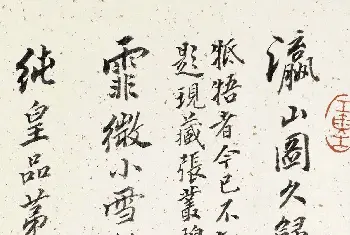 瀛山圖久錄
牴牾者今已不
題現藏張叢碧
霏微小雪
純皇品第